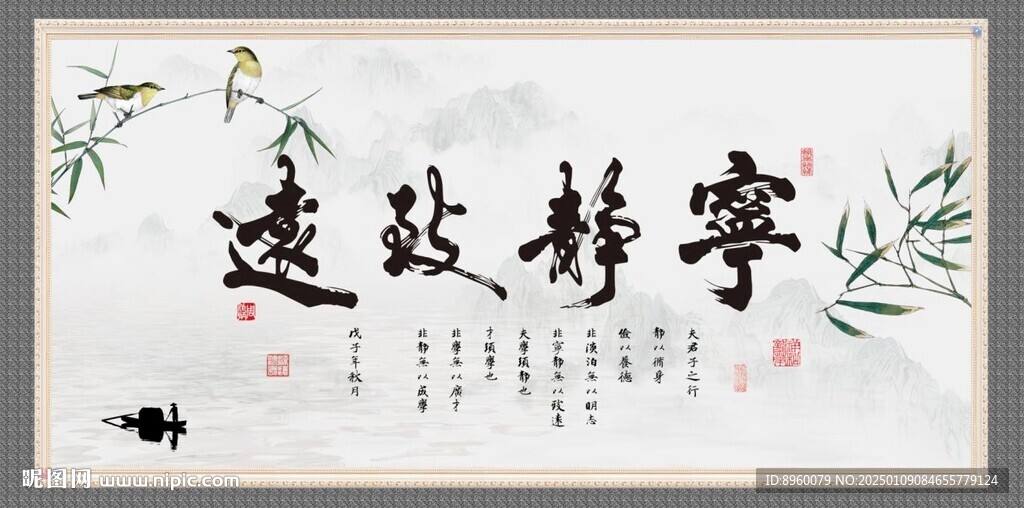 寧靜致遠
夫君子之行
靜以脩身
儉以養德
非淡泊無以明志
非寧靜無以致遠
夫學須靜也
才須學也
非學無以廣才
非靜無以成學
戊子年秋月
昵图网 www.nipic.com
ID:8960079 NO:20250109084655779124